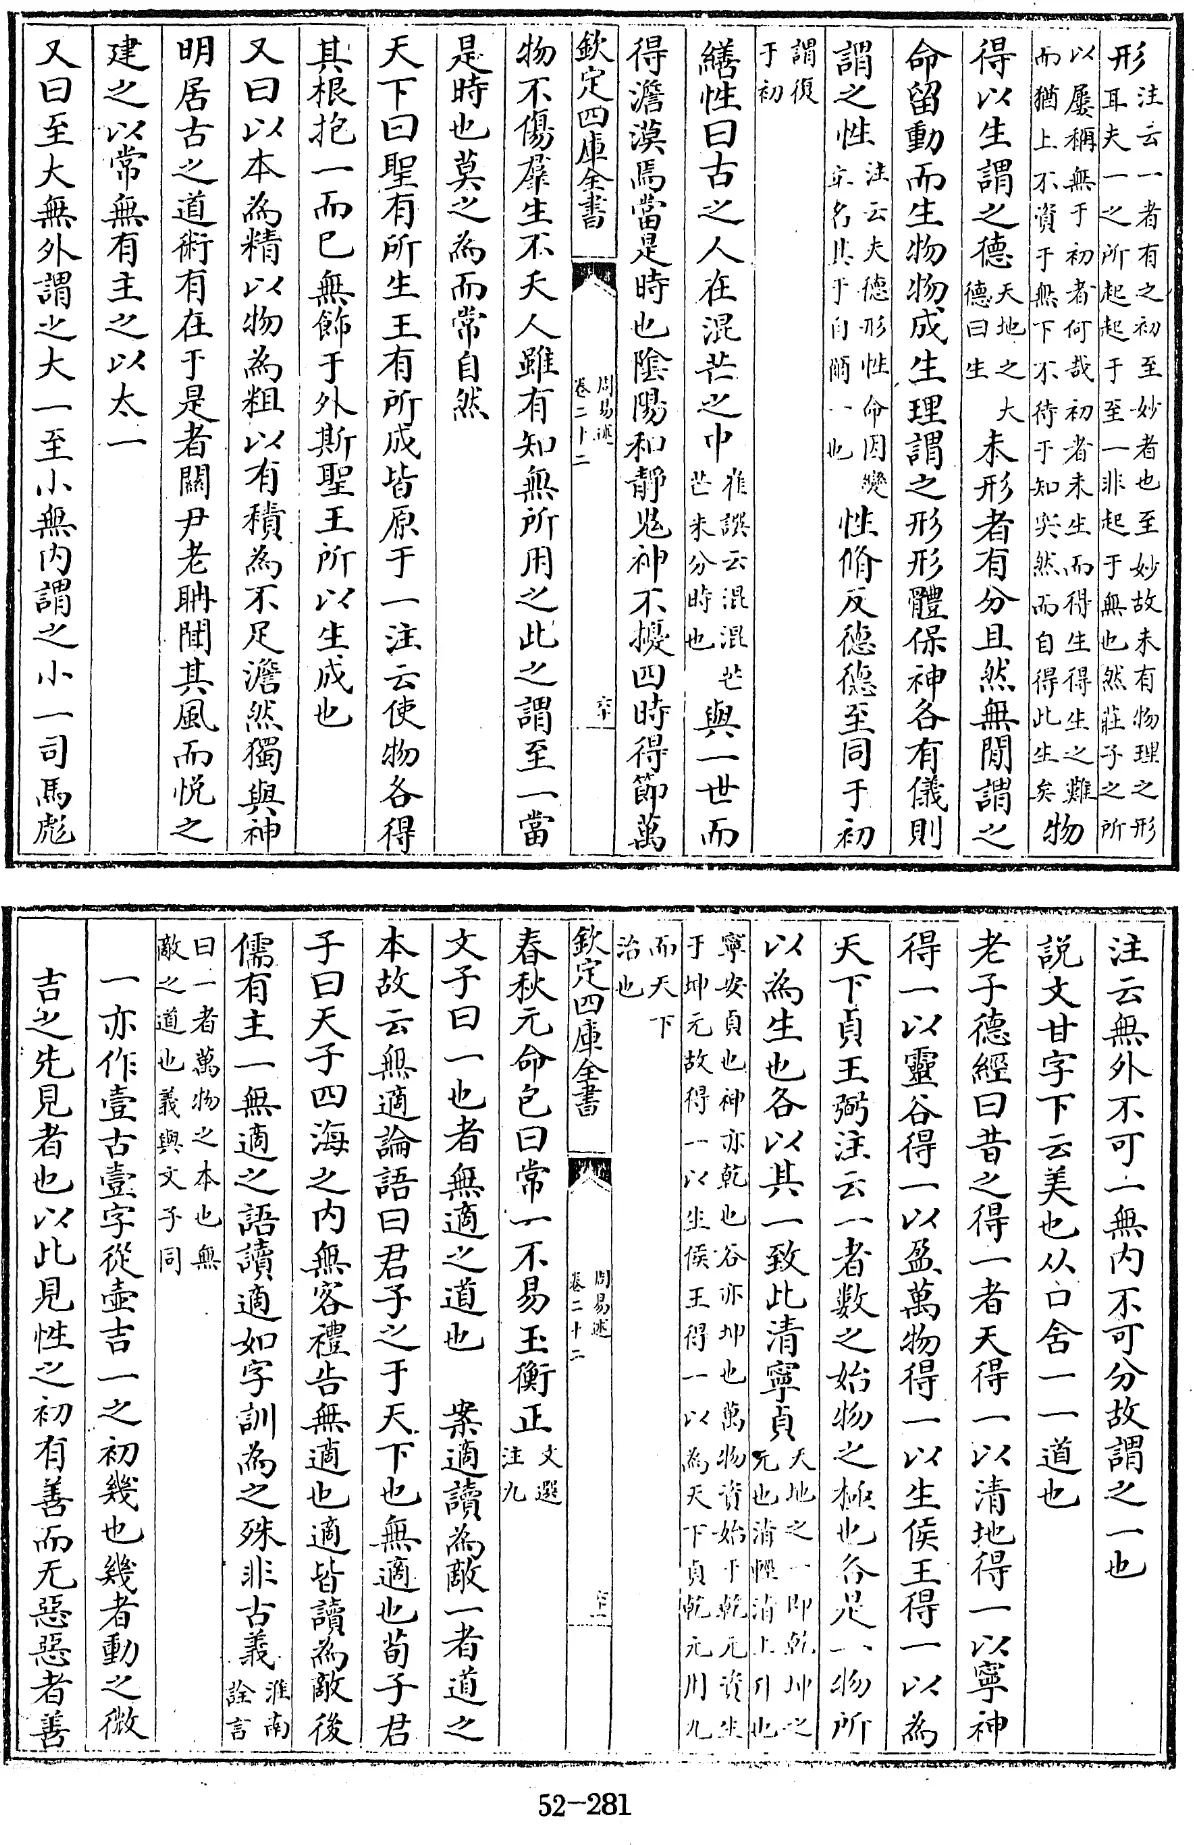 形注云一者有之初至妙者也至妙故未有物理之形耳夫一之所起起于至一非起于無也然莊子之所
以屢稱無于初者何哉初者未生而得生得生之難而猶上不資于無下不待于知突然而自得此生矣物
得以生謂之德天地之大德曰生未形者有分且然無閒謂之
命留動而生物物成生理謂之形形體保神各有儀則
謂之性注云夫德形性命因變立名其于自爾一也性脩反德德至同于初
謂復于初
繕性曰古之人在混芒之中崔譔云混混芒芒未分時也與一世而
得澹漠焉當是時也陰陽和靜鬼神不擾四時得節萬
欽定四庫全書 周易述卷二十二 六十
物不傷羣生不夭人雖有知無所用之此之謂至一當
是時也莫之為而常自然
天下曰聖有所生王有所成皆原于一注云使物各得
其根抱一而已無飾于外斯聖王所以生成也
又曰以本為精以物為粗以有積為不足澹然獨與神
明居古之道術有在于是者關尹老聃聞其風而悅之
建之以常無有主之以太一
又曰至大無外謂之大一至小無內謂之小一司馬彪
注云無外不可一無内不可分故謂之一也
說文甘字下云美也从口含一一道也
老子德經曰昔之得一者天得一以清地得一以寧神
得一以靈谷得一以盈萬物得一以生侯王得一以為
天下貞王弼注云一者數之始物之極也各是一物所
以為生也各以其一致此清寧貞天地之一即乾坤之元也清輕清上升也
寧安貞也神亦乾也谷亦坤也萬物資始于乾元資生于坤元故得一以生侯王得一以為天下貞乾元用九
而天下治也
欽定四庫全書 周易述卷二十二 六十一
春秋元命包曰常一不易玉衡正文選注九
文子曰一也者無適之道也 案適讀為敵一者道之
本故云無適論語曰君子之于天下也無適也荀子君
子曰天子四海之内無客禮告無適也適皆讀為敵後
儒有主一無適之語讀適如字訓為之殊非古義淮南詮言
曰一者萬物之本也無敵之道也義與文子同
一亦作壹古壹字從壺吉一之初幾也幾者動之微
吉之先見者也以此見性之初有善而无惡惡者善
52-281